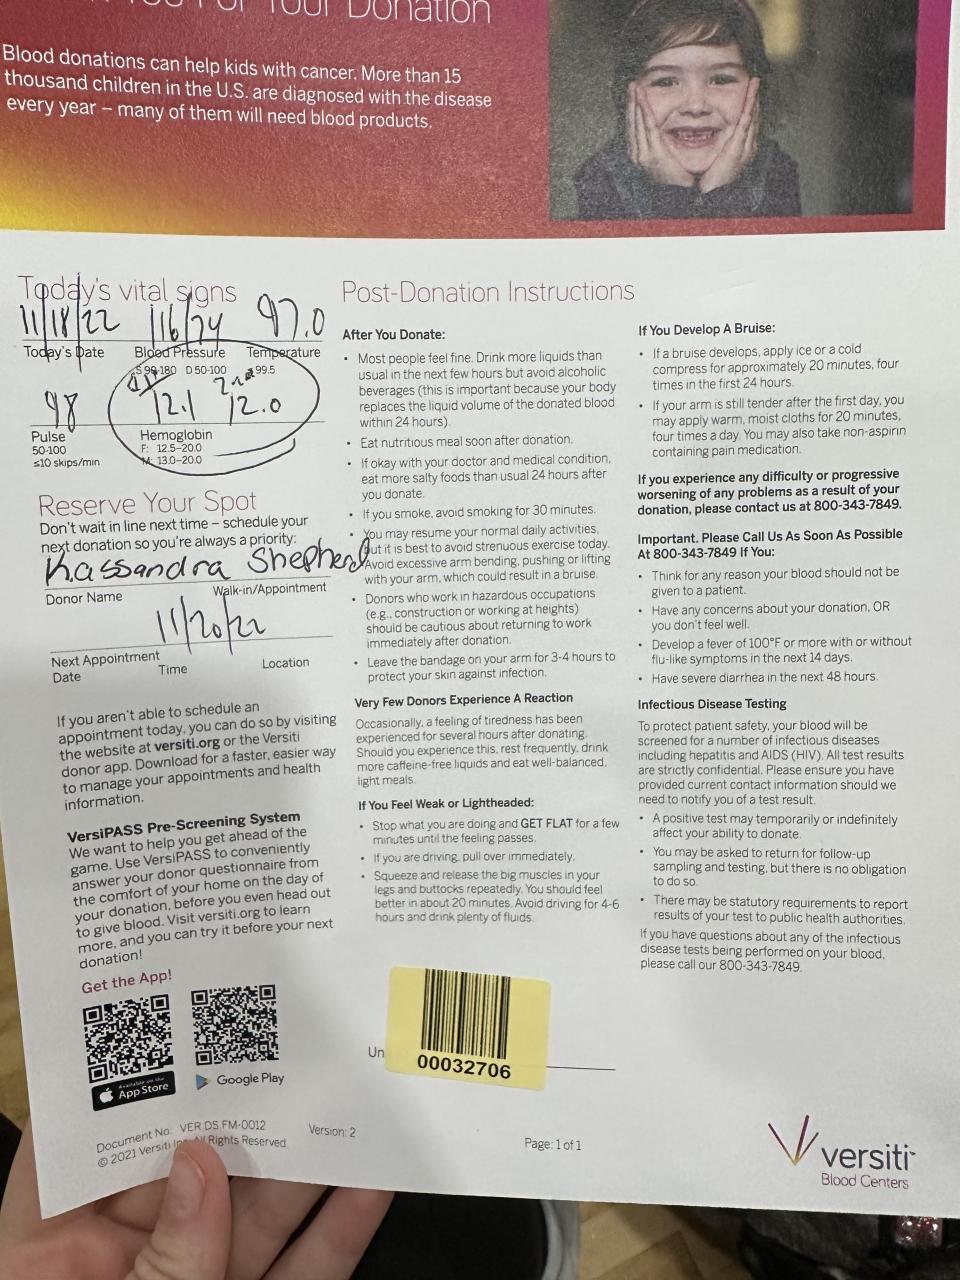 You For Your Donation
Blood donations can help kids with cancer. More than 15
thousand children in the U.S. are diagnosed with the disease
every year – many of them will need blood products.
Today's vital signs
11/18/22 116/74 97.0
Today's Date Blood Pressure Temperature
S 90-180 D 50-100 99.5
1st 2nd
98 12.1 12.0
Pulse
50-100
≤10 skips/min
Hemoglobin
F: 12.5-20.0
M: 13.0-20.0
Reserve Your Spot
Don't wait in line next time – schedule your
next donation so you're always a priority:
Kassandra Shepherd
Donor Name Walk-in/Appointment
11/20/22
Next Appointment
Date Time Location
If you aren't able to schedule an
appointment today, you can do so by visiting
the website at versiti.org or the Versiti
donor app. Download for a faster, easier way
to manage your appointments and health
information.
VersiPASS Pre-Screening System
We want to help you get ahead of the
game. Use VersiPASS to conveniently
answer your donor questionnaire from
the comfort of your home on the day of
your donation, before you even head out
to give blood. Visit versiti.org to learn
more, and you can try it before your next
donation!
Get the App!
Available on the
App Store
Google Play
Document No: VER.DS.FM-0012 Version: 2
© 2021 Versiti Inc. All Rights Reserved.
Post-Donation Instructions
After You Donate:
• Most people feel fine. Drink more liquids than
usual in the next few hours but avoid alcoholic
beverages (this is important because your body
replaces the liquid volume of the donated blood
within 24 hours).
• Eat nutritious meal soon after donation.
• If okay with your doctor and medical condition,
eat more salty foods than usual 24 hours after
you donate.
• If you smoke, avoid smoking for 30 minutes.
• You may resume your normal daily activities,
but it is best to avoid strenuous exercise today.
Avoid excessive arm bending, pushing or lifting
with your arm, which could result in a bruise.
• Donors who work in hazardous occupations
(e.g., construction or working at heights)
should be cautious about returning to work
immediately after donation.
• Leave the bandage on your arm for 3-4 hours to
protect your skin against infection.
Very Few Donors Experience A Reaction
Occasionally, a feeling of tiredness has been
experienced for several hours after donating.
Should you experience this, rest frequently, drink
more caffeine-free liquids and eat well-balanced,
light meals.
If You Feel Weak or Lightheaded:
• Stop what you are doing and GET FLAT for a few
minutes until the feeling passes.
• If you are driving, pull over immediately.
• Squeeze and release the big muscles in your
legs and buttocks repeatedly. You should feel
better in about 20 minutes. Avoid driving for 4-6
hours and drink plenty of fluids.
Un
00032706
Page: 1 of 1
If You Develop A Bruise:
• If a bruise develops, apply ice or a cold
compress for approximately 20 minutes, four
times in the first 24 hours.
• If your arm is still tender after the first day, you
may apply warm, moist cloths for 20 minutes,
four times a day. You may also take non-aspirin
containing pain medication.
If you experience any difficulty or progressive
worsening of any problems as a result of your
donation, please contact us at 800-343-7849.
Important. Please Call Us As Soon As Possible
At 800-343-7849 If You:
• Think for any reason your blood should not be
given to a patient.
• Have any concerns about your donation, OR
you don't feel well.
• Develop a fever of 100°F or more with or without
flu-like symptoms in the next 14 days.
• Have severe diarrhea in the next 48 hours.
Infectious Disease Testing
To protect patient safety, your blood will be
screened for a number of infectious diseases
including hepatitis and AIDS (HIV). All test results
are strictly confidential. Please ensure you have
provided current contact information should we
need to notify you of a test result.
• A positive test may temporarily or indefinitely
affect your ability to donate.
• You may be asked to return for follow-up
sampling and testing, but there is no obligation
to do so.
• There may be statutory requirements to report
results of your test to public health authorities.
If you have questions about any of the infectious
disease tests being performed on your blood,
please call our 800-343-7849.
versiti
Blood Centers